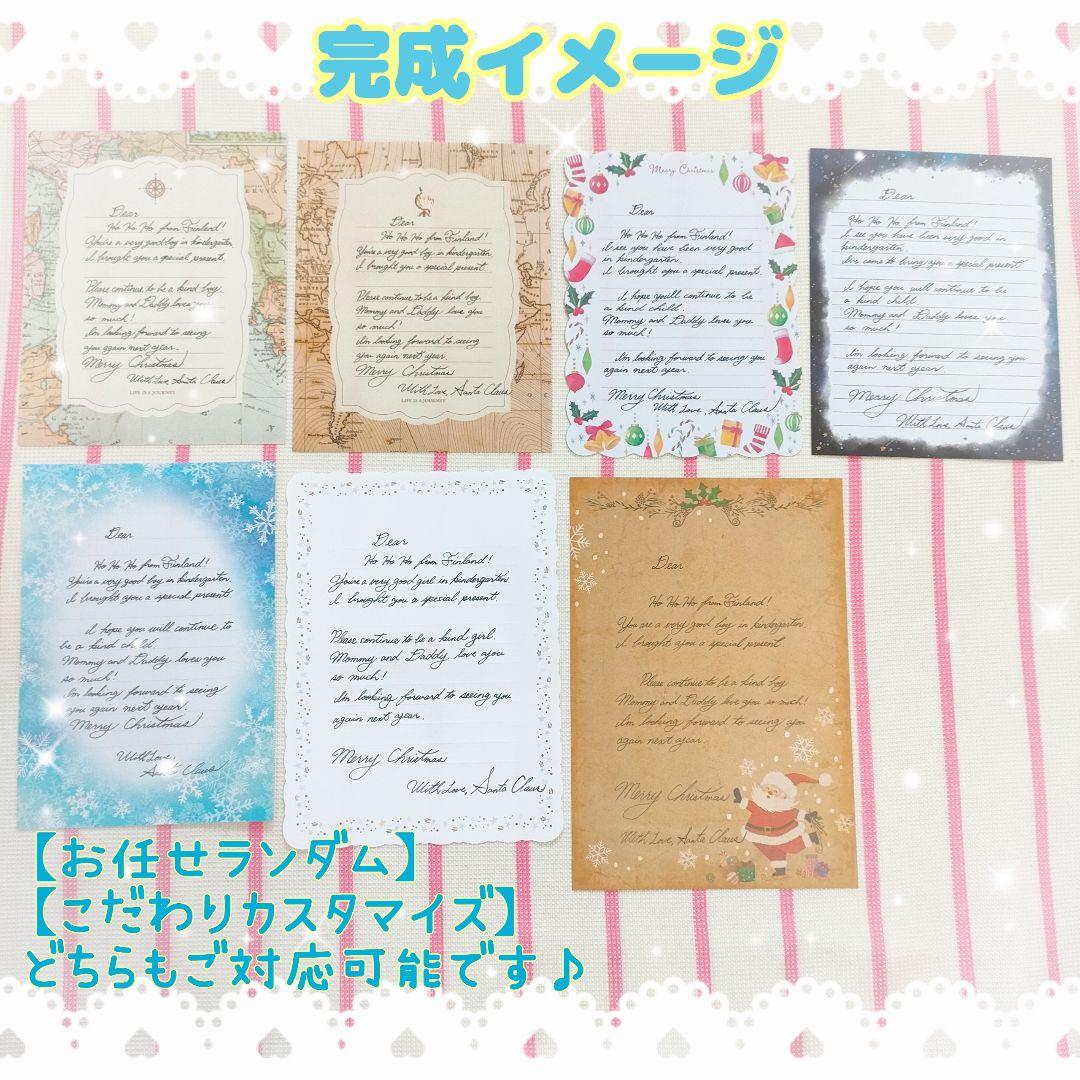 完成イメージ
Dear
Ho Ho Ho from Finland!
You're a very good boy in kindergarten.
I brought you a special present.
Please continue to be a kind boy.
Mommy and Daddy loves you
so much!
I'm looking forward to seeing
you again next year.
Merry Christmas
With Love, Santa Claus
LIFE IS A JOURNEY
Dear
Ho Ho Ho from Finland!
You're a very good boy in kindergarten.
I brought you a special present.
Please continue to be a kind boy.
Mommy and Daddy love you
so much!
I'm looking forward to seeing
you again next year.
Merry Christmas
With Love, Santa Claus
LIFE IS A JOURNEY
Merry Christmas
Dear
Ho Ho Ho from Finland!
I see you have been very good
in kindergarten.
I brought you a special present.
I hope you'll continue to be
a kind child.
Mommy and Daddy loves you
so much!
I'm looking forward to seeing you
again next year.
Merry Christmas
With Love, Santa Claus
Dear
Ho Ho Ho from Finland!
I see you have been very good in
kindergarten.
I've come to bring you a special present.
I hope you will continue to be
a kind child
Mommy and Daddy loves you
so much!
I'm looking forward to seeing you
again next year.
Merry Christmas
With Love, Santa Claus
Dear
Ho Ho Ho from Finland!
You're a very good boy in kindergarten.
I brought you a special present.
I hope you will continue to
be a kind child.
Mommy and Daddy loves you
so much!
I'm looking forward to seeing
you again next year.
Merry Christmas
With Love,
Santa Claus
Dear
Ho Ho Ho from Finland!
You're a very good girl in kindergarten.
I brought you a special present.
Please continue to be a kind girl.
Mommy and Daddy love you
so much!
I'm looking forward to seeing you
again next year.
Merry Christmas
With Love, Santa Claus
Dear
Ho Ho Ho from Finland!
You are a very good boy in kindergarten
I brought you a special present
Please continue to be a kind boy
Mommy and Daddy love you so much!
I'm looking forward to seeing you
again next year.
Merry Christmas
With Love, Santa Claus
【お任せランダム】
【こだわりカスタマイズ】
どちらもご対応可能です♪